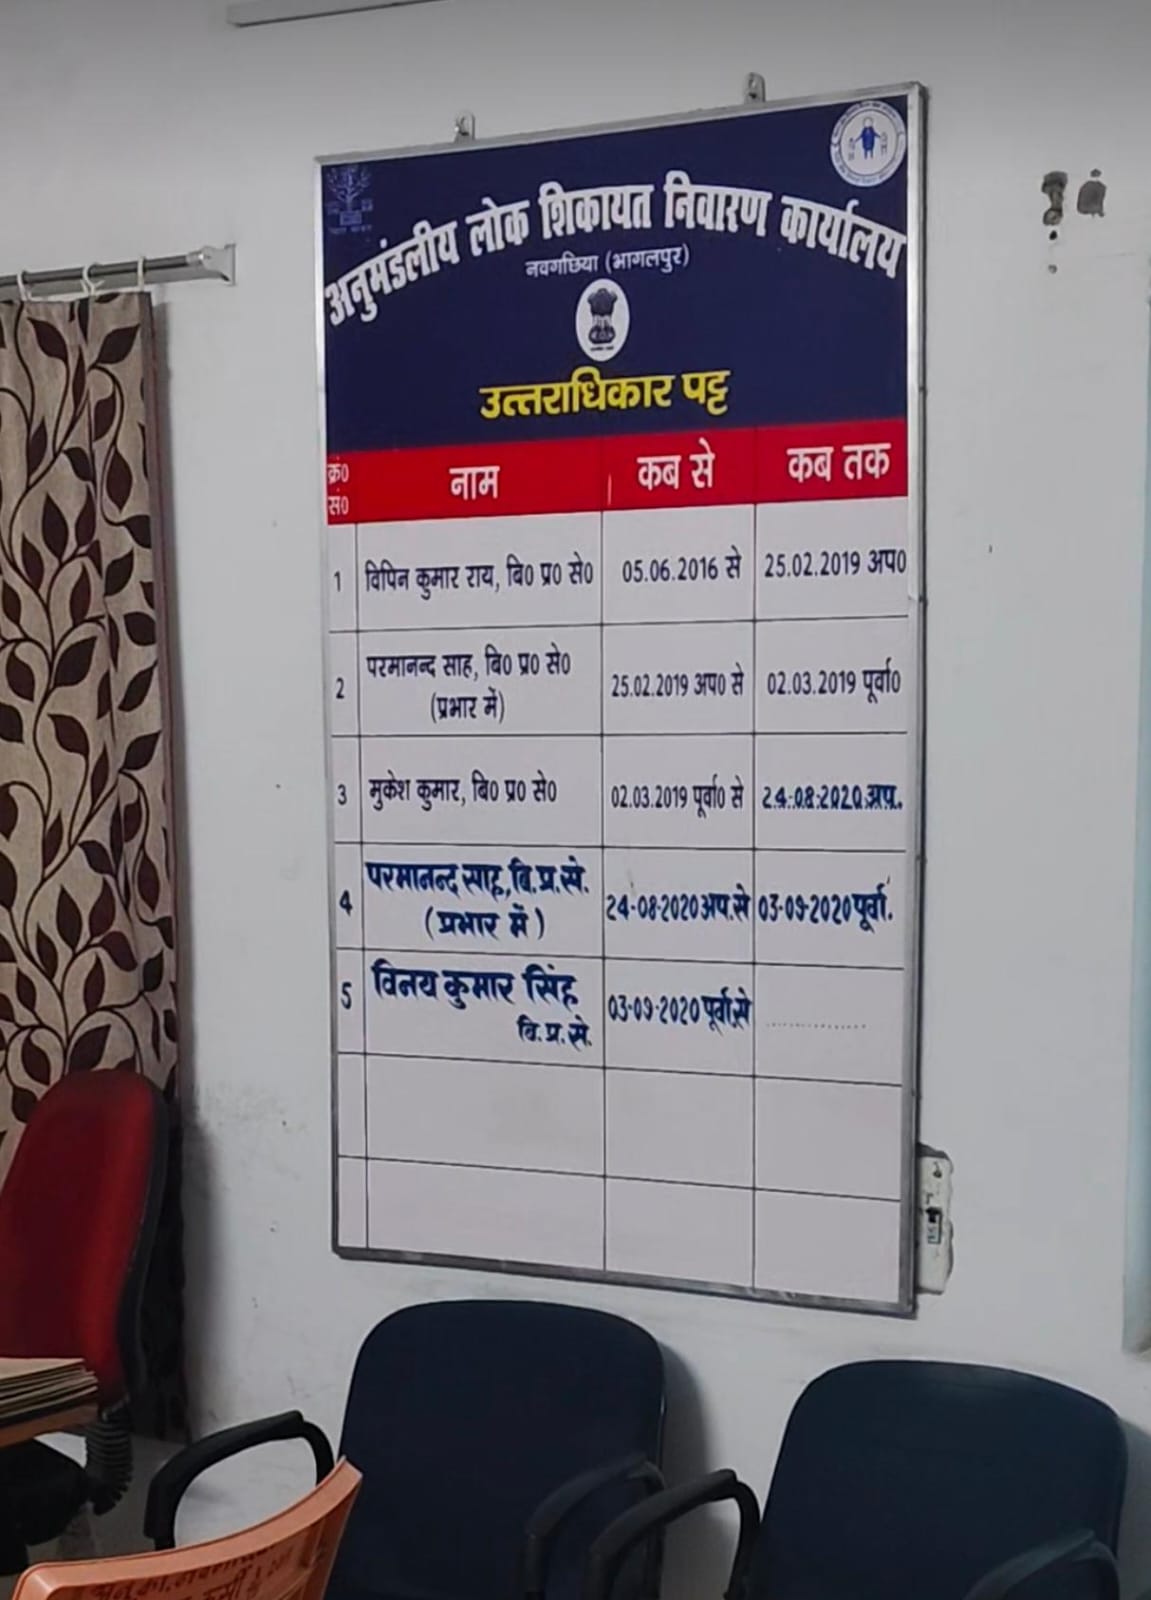 अनुमंडलीय लोक शिकायत निवारण कार्यालय
नवगछिया (भागलपुर)
उत्तराधिकार पट्ट
क्रं0 सं0 नाम कब से कब तक
1 विपिन कुमार राय, बि0 प्र0 से0 05.06.2016 से 25.02.2019 अप0
2 परमानन्द साह, बि0 प्र0 से0 (प्रभार में) 25.02.2019 अप0 से 02.03.2019 पूर्वा0
3 मुकेश कुमार, बि0 प्र0 से0 02.03.2019 पूर्वा0 से 24.08.2020 अप.
4 परमानन्द साह, बि.प्र.से. (प्रभार में) 24-08-2020 अप.से 03-09-2020 पूर्वा.
5 विनय कुमार सिंह बि.प्र.से. 03-09-2020 पूर्वा.से ...............